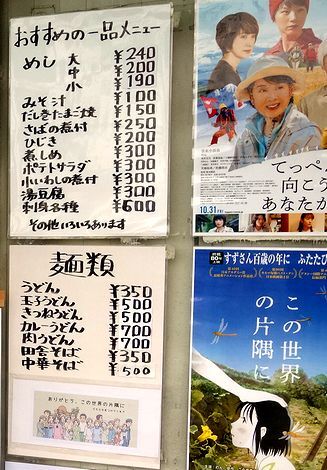 おすすめの一品メニュー
めし 大 ¥240
中 ¥200
小 ¥190
みそ汁 ¥100
だしきたまご焼 ¥150
さばの煮付 ¥250
ひじき ¥300
煮しめ ¥300
ポテトサラダ ¥300
小いわしの煮付 ¥300
湯豆腐 ¥300
刺身各種 ¥600
その他いろいろあります
麺類
うどん ¥350
玉子うどん ¥500
きつねうどん ¥500
カレーうどん ¥700
肉うどん ¥700
田舎そば ¥350
中華そば ¥500
ありがとう、この世界の片隅に
てっぺん
向こう
あなたが
10.31
すずさん百歳の年に ふたたび
この世界
の片隅に